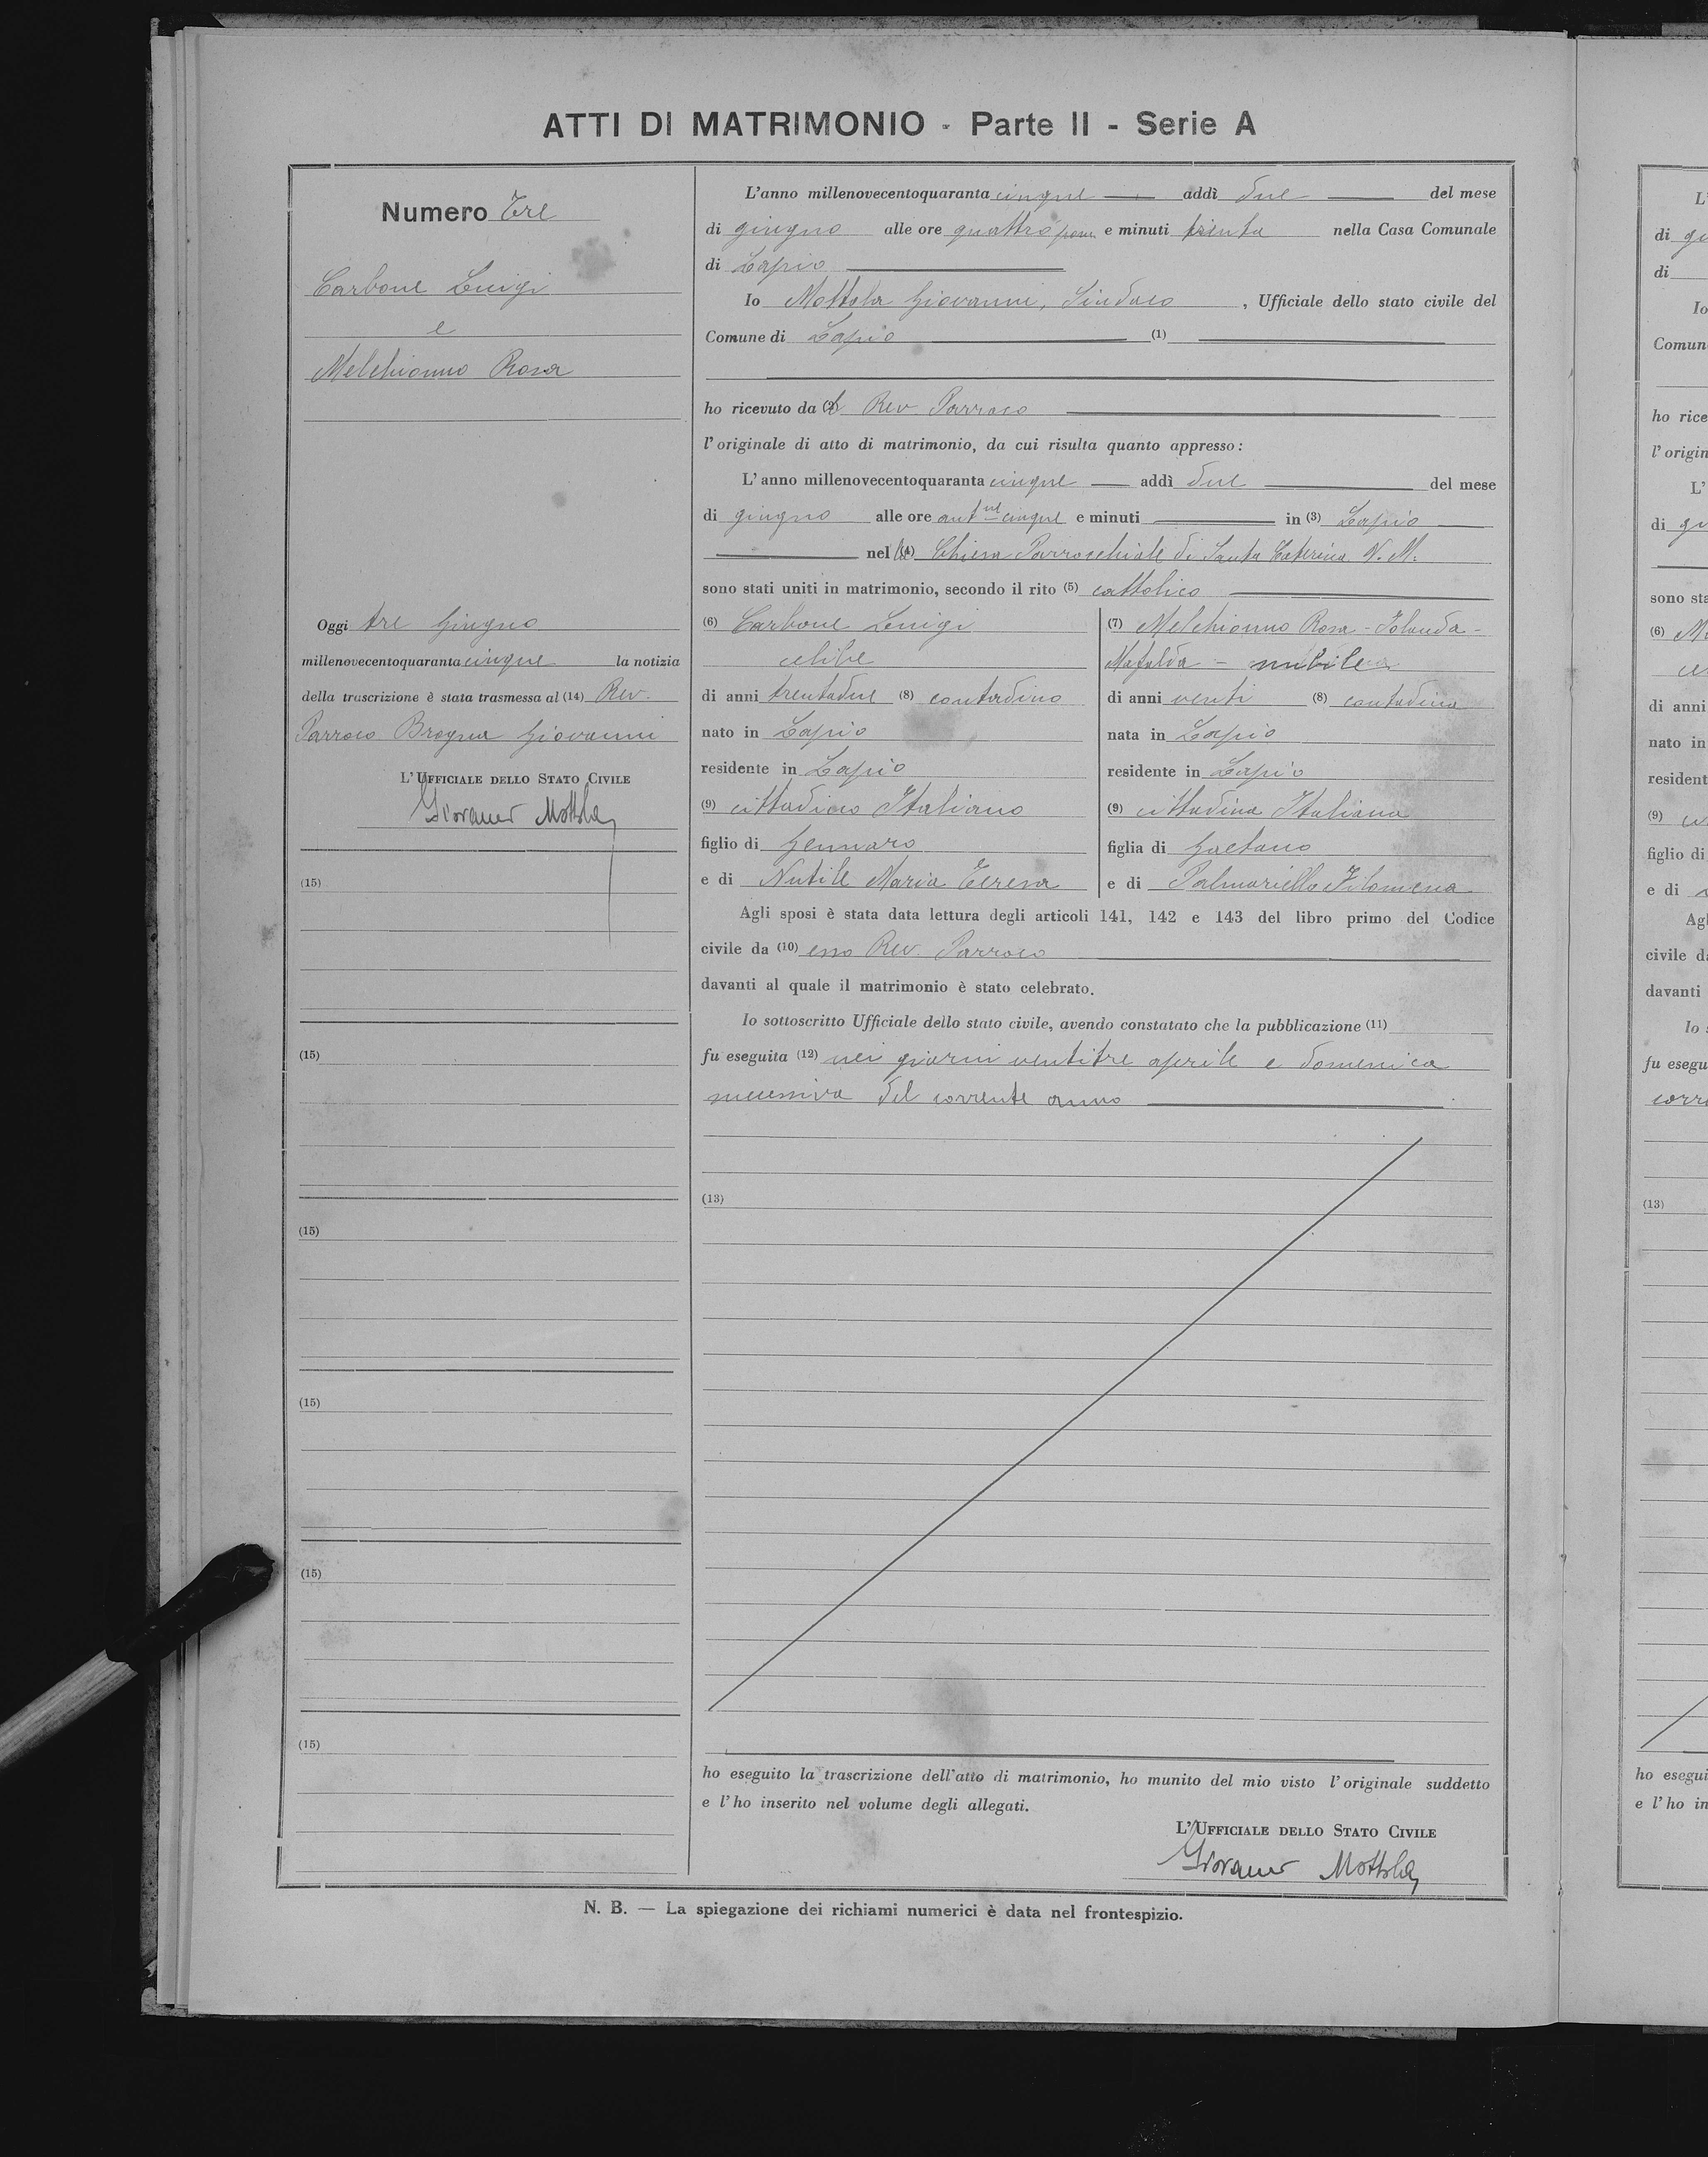 ATTI DI MATRIMONIO - Parte II - Serie A
Numero Tre
Carbone Luigi
e
Melchionno Rosa
Oggi tre Giugno
millenovecentoquaranta cinque la notizia
della trascrizione è stata trasmessa al (14) Rev.
Parroco Brogna Giovanni
L'UFFICIALE DELLO STATO CIVILE
Giovanni Mottola
(15)
(15)
(15)
(15)
(15)
(15)
L'anno millenovecentoquaranta cinque addì due del mese
di giugno alle ore quattro pom e minuti trenta nella Casa Comunale
di Lapio
Io Mottola Giovanni, Sindaco, Ufficiale dello stato civile del
Comune di Lapio (1)
ho ricevuto da (2) Rev Parroco
l'originale di atto di matrimonio, da cui risulta quanto appresso:
L'anno millenovecentoquaranta cinque addì due del mese
di giugno alle ore ant. cinque e minuti in (3) Lapio
nella (4) Chiesa Parrocchiale di Santa Caterina V. M.
sono stati uniti in matrimonio, secondo il rito (5) cattolico
(6) Carbone Luigi
celibe
di anni trentadue (8) contadino
nato in Lapio
residente in Lapio
(9) cittadino Italiano
figlio di Gennaro
e di Nutile Maria Teresa
(7) Melchionno Rosa - Jolanda -
Mafalda - nubile
di anni venti (8) contadina
nata in Lapio
residente in Lapio
(9) cittadina Italiana
figlia di Gaetano
e di Palmariello Filomena
Agli sposi è stata data lettura degli articoli 141, 142 e 143 del libro primo del Codice
civile da (10) esso Rev. Parroco
davanti al quale il matrimonio è stato celebrato.
Io sottoscritto Ufficiale dello stato civile, avendo constatato che la pubblicazione (11)
fu eseguita (12) nei giorni ventitre aprile e domenica
successiva del corrente anno
(13)
ho eseguito la trascrizione dell'atto di matrimonio, ho munito del mio visto l'originale suddetto
e l'ho inserito nel volume degli allegati.
L'UFFICIALE DELLO STATO CIVILE
Giovanni Mottola
N. B. — La spiegazione dei richiami numerici è data nel frontespizio.